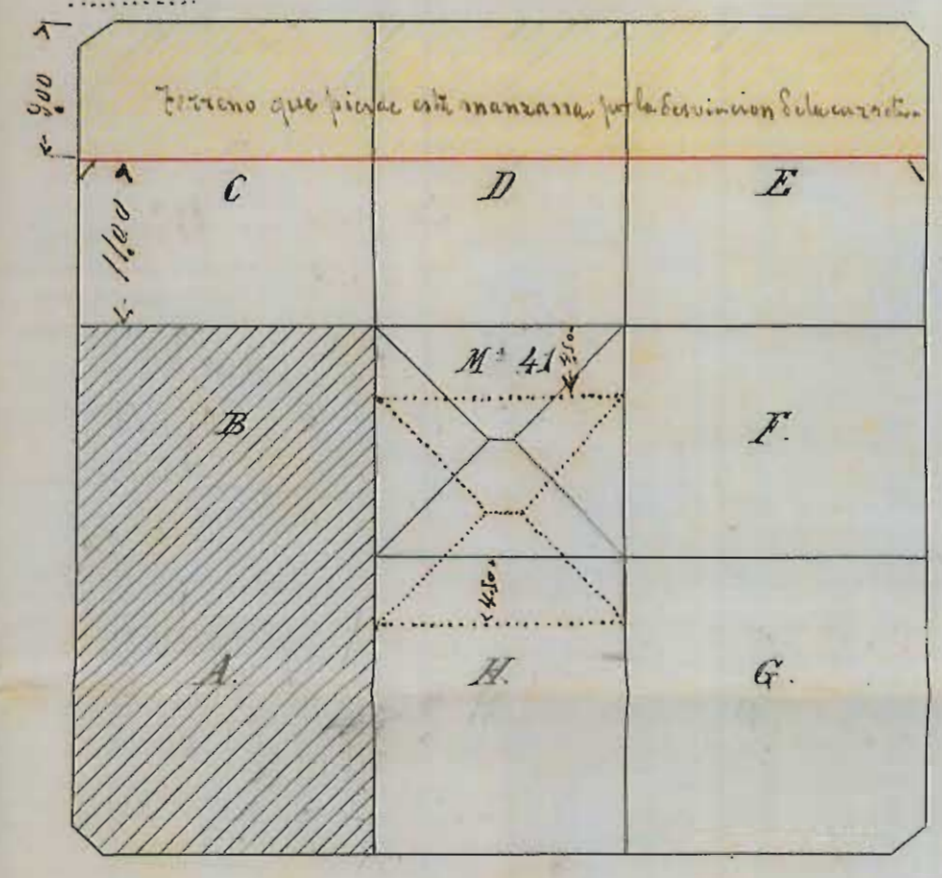 9.00
Terreno que pierde esta manzana por la desviacion de la carretera
11.00
C
D
E
Mª 41
4.50
B
F.
4.50
A.
H.
G.